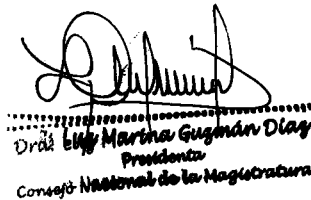 Dra. Luz Marina Guzmán Díaz
Presidenta
Consejo Nacional de la Magistratura